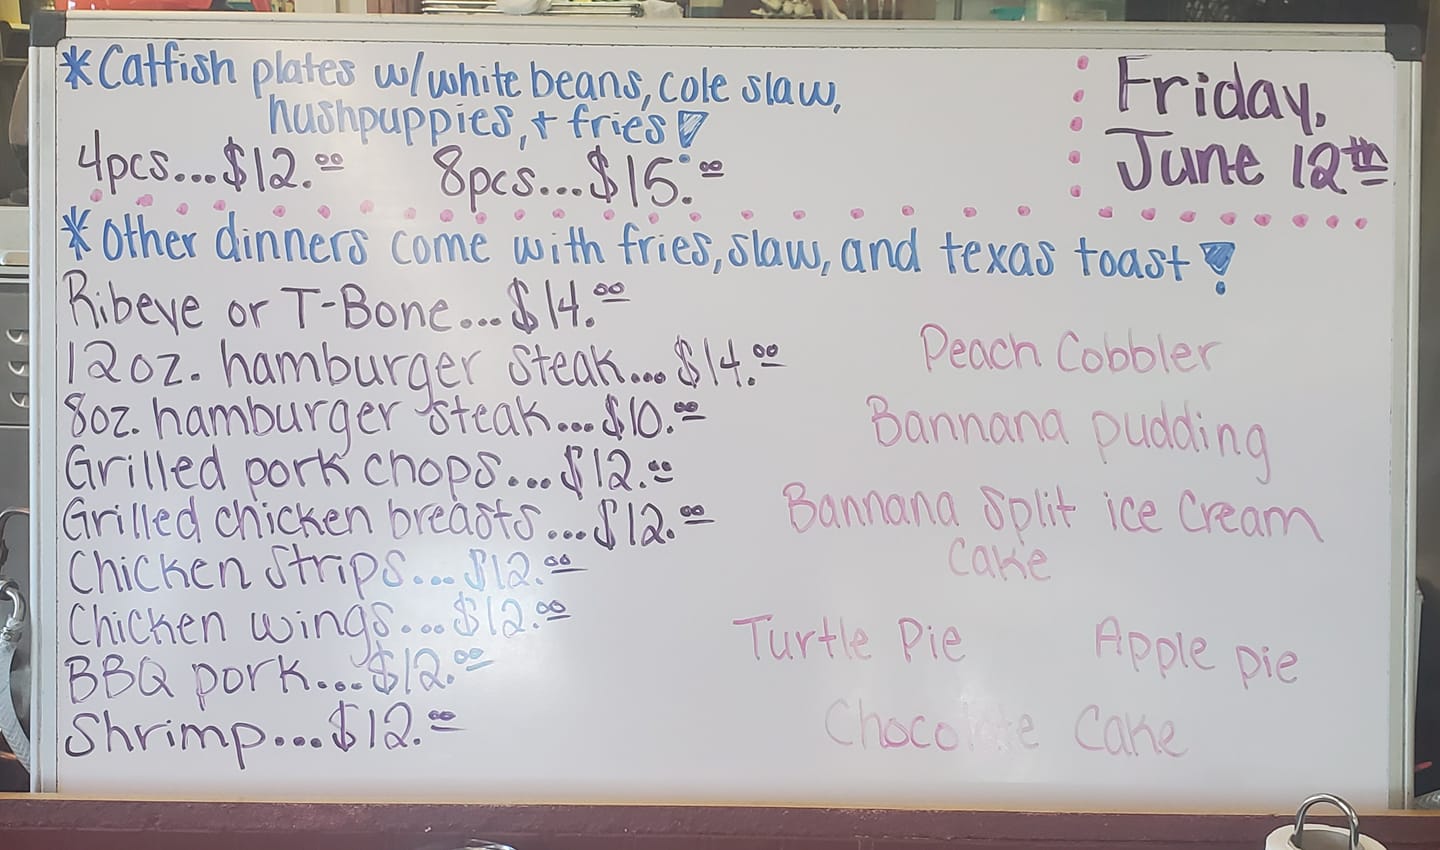 *Catfish plates w/white beans, cole slaw,
hushpuppies, + fries!
4pcs...$12.00 8pcs...$15.00
Friday,
June 12th
*Other dinners come with fries, slaw, and texas toast!
Ribeye or T-Bone...$14.00
12oz. hamburger steak...$14.00
8oz. hamburger steak...$10.00
Grilled pork chops...$12.00
Grilled chicken breasts...$12.00
Chicken Strips...$12.00
Chicken wings...$12.00
BBQ pork...$12.00
Shrimp...$12.00
Peach Cobbler
Bannana pudding
Bannana Split ice Cream
Cake
Turtle Pie Apple pie
Chocolate Cake